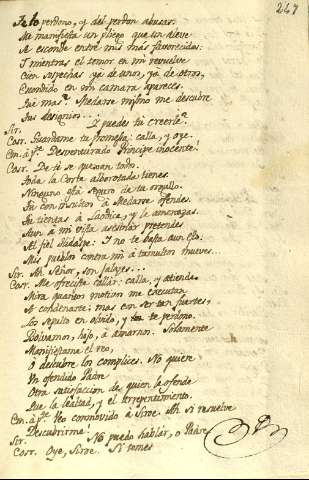 247
Te lo perdono, y del perdon abusas.
Me manifiesta un pliego que un aleve
Se esconde entre mis más favorecidos:
Y mientras el temor en mi revuelve
Cien sospechas ya de unos, ya de otros,
Escondido en mi camara apareces.
Que mas? Medarse mismo me descubre
Tus designios...
Sir. Y puedes tú creerle?
Cosr. Guardame tu promesa: calla, y oye.
Em. à p.te Desventurado Principe inocente!
Cosr. De ti se quexan todos.
Toda la Corte alborotada tienes.
Ninguno está seguro de tu orgullo.
Tu con insultos à Medarse ofendes.
Tu tientas à Laodice, y la amenazas.
Aun à mi vista asesinar pretendes
Al fiel Hidalpe: Y no te basta aun esto:
Mis pueblos contra mi à tumultos mueves...
Sir. Ah Señor, son falsas...
Cosr. Me ofreciste callar: calla, y atiende.
Mira quantos motivos me executan
A condenarte; mas con ser tan fuertes,
Los sepulto en olvido, y te perdono.
Volvamos, hijo, à amarnos. Solamente
Manifiestame el reo,
O descubre los complices. No quiere
Un ofendido Padre
Otra satisfaccion de quien le ofende
Que la lealtad, y el arrepentimiento.
Em. à p.te Veo conmovido à Siroe. Ah si resuelve
Descubrirme.
Sir. No puedo hablar, o Padre
Cosr. Oye, Siroe. Si temes